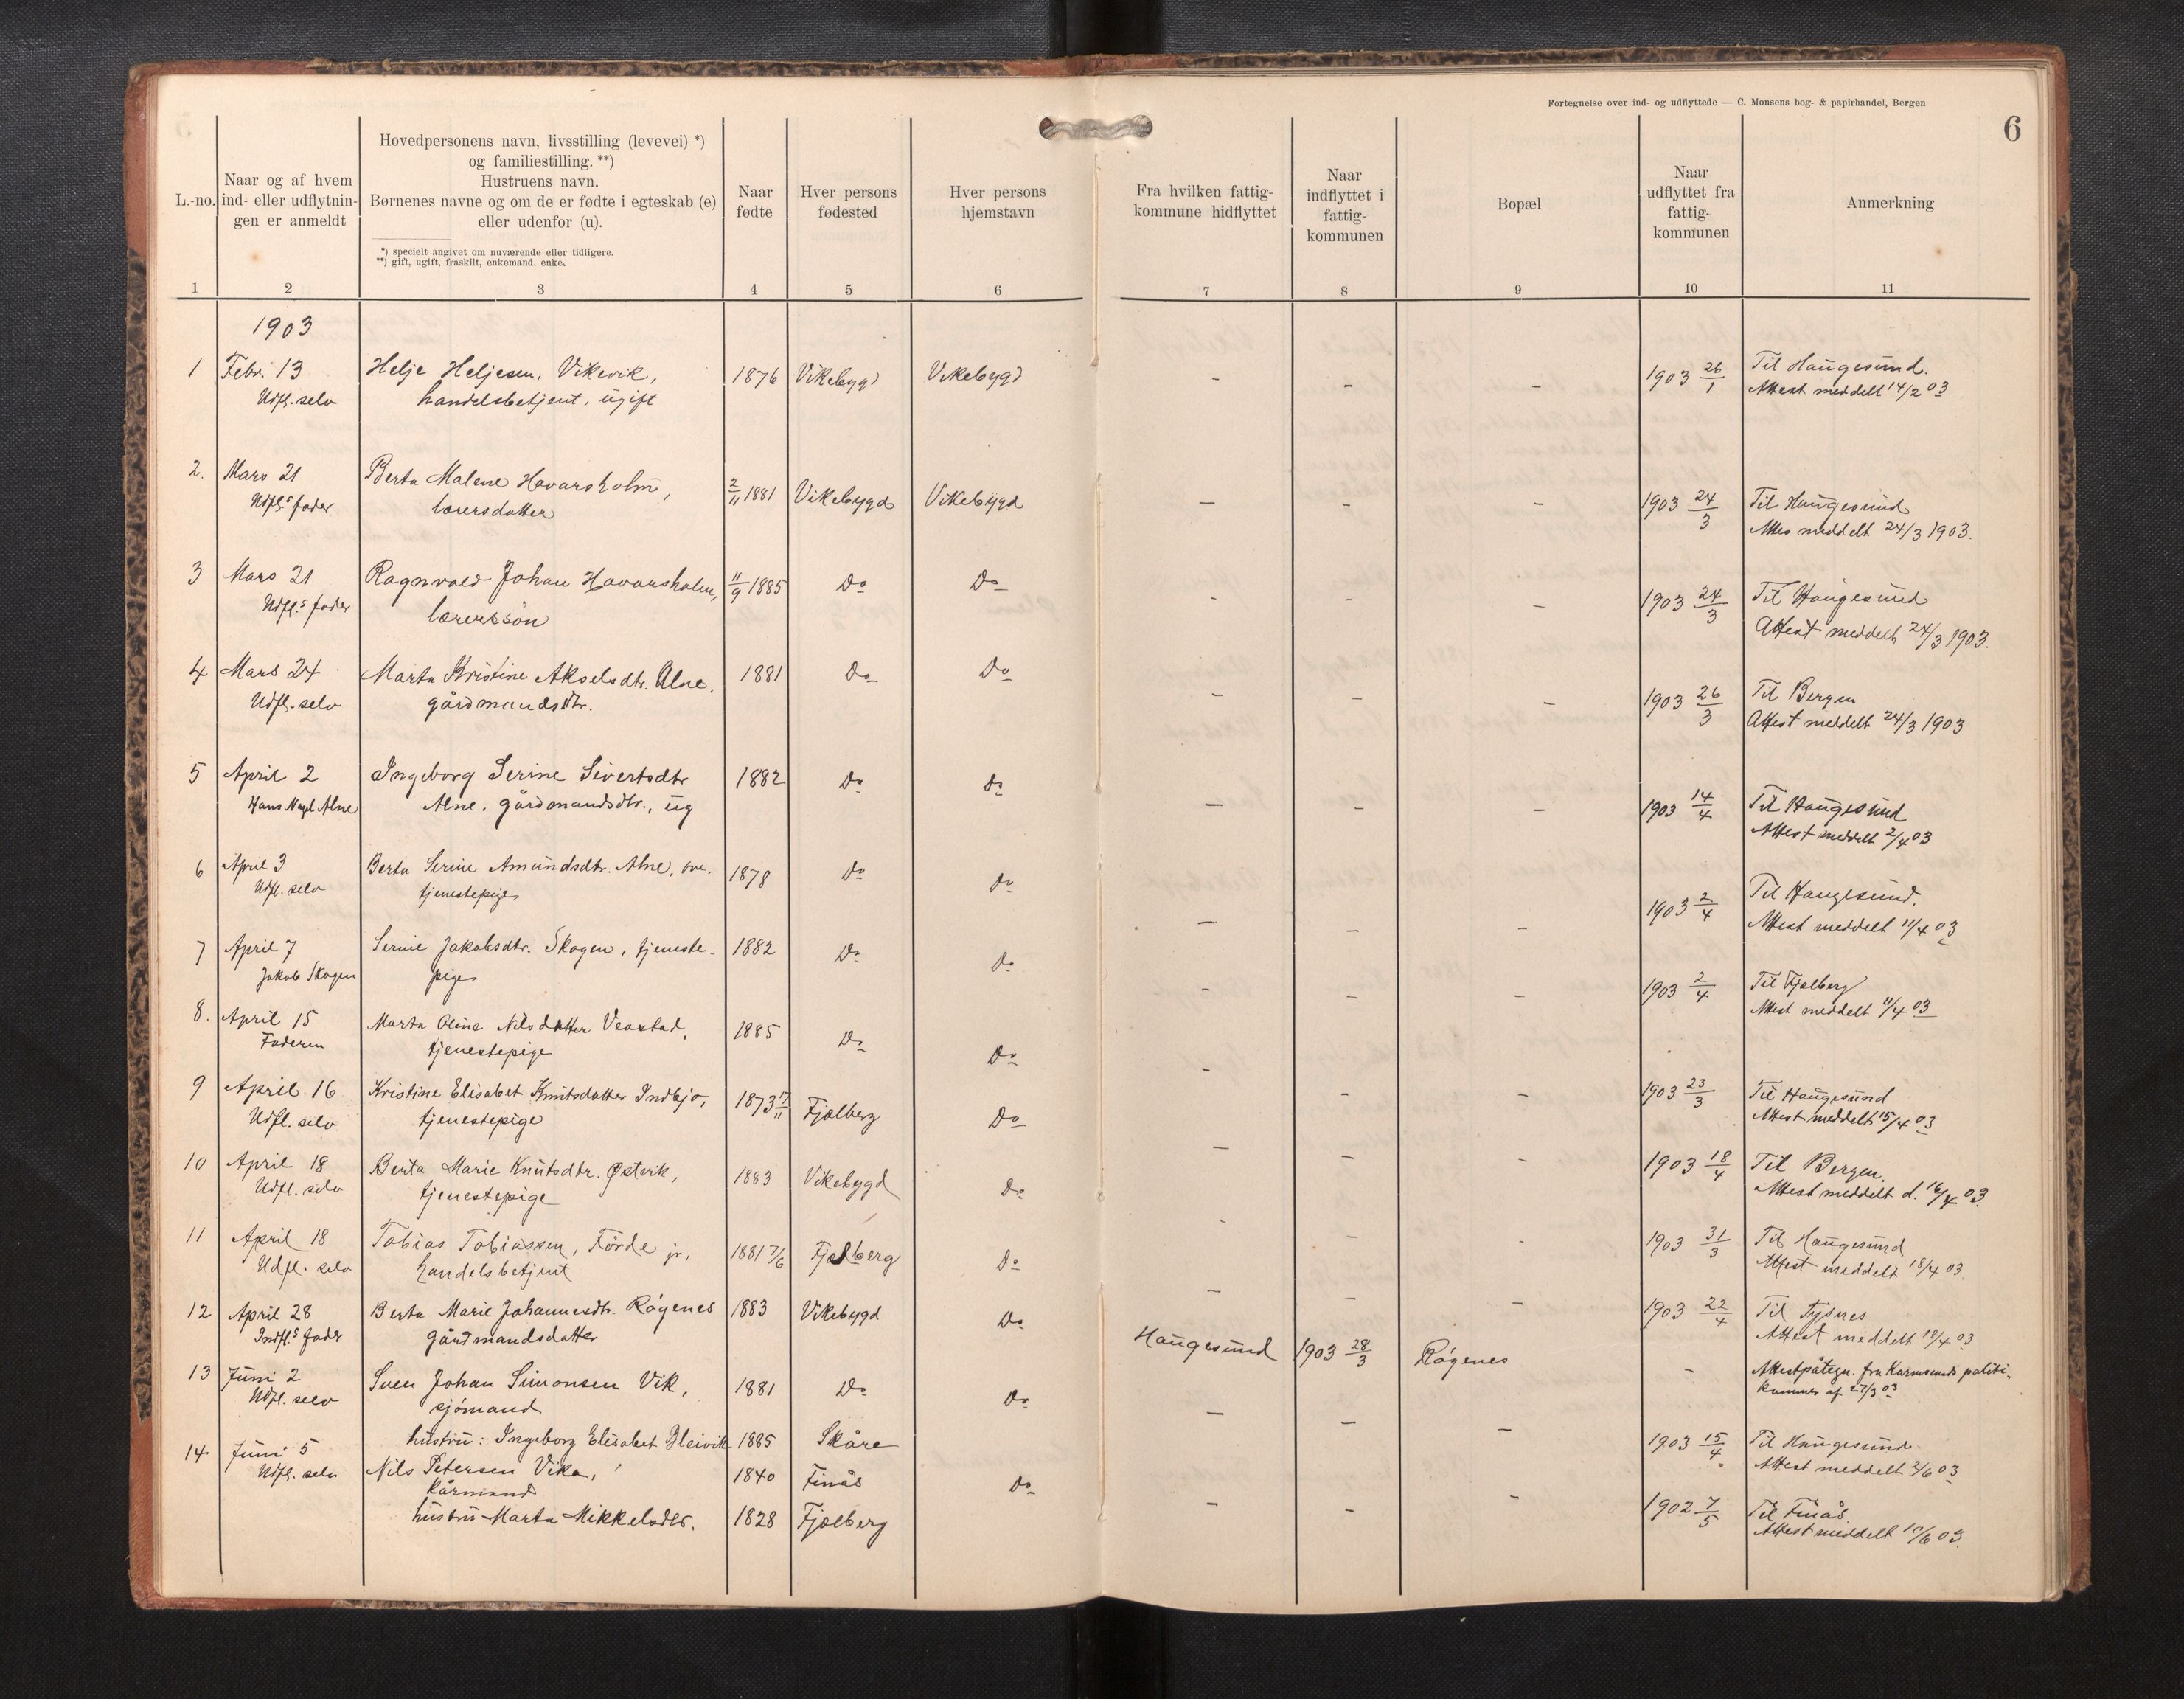 Fortegnelse over ind- og udflyttede — C. Monsens bog- & papirhandel, Bergen
6
L.-no.
Naar og af hvem
ind- eller udflytnin-
gen er anmeldt
Hovedpersonens navn, livsstilling (levevei) *)
og familiestilling. **)
Hustruens navn.
Børnenes navne og om de er fødte i egteskab (e)
eller udenfor (u).
*) specielt angivet om nuværende eller tidligere.
**) gift, ugift, fraskilt, enkemand, enke.
Naar
fødte
Hver persons
fødested
Hver persons
hjemstavn
Fra hvilken fattig-
kommune hidflyttet
Naar
indflyttet i
fattig-
kommunen
Bopæl
Naar
udflyttet fra
fattig-
kommunen
Anmerkning
1 2 3 4 5 6 7 8 9 10 11
1903
1 Febr. 13 Helje Heljesen, Vikevik, 1876 Vikebygd Vikebygd - - - 1903 26/1 Til Haugesund.
Udfl. selv handelsbetjent, ugift Attest meddelt 14/2 03
2. Mars 21 Berta Malene Havarsholm, 2/11 1881 Vikebygd Vikebygd - - - 1903 24/3 Til Haugesund
Udfl.s fader lærersdatter Attes meddelt 24/3 1903.
3 Mars 21 Ragnvald Johan Havarsholm, 11/9 1885 Do Do - - - 1903 24/3 Til Haugesund
Udfl.s fader lærerssön Attest meddelt 24/3 1903.
4 Mars 24 Marta Kristine Akselsdtr. Alne, 1881 Do Do - - - 1903 26/3 Til Bergen
Udfl. selv gårdmandsdtr. Attest meddelt 24/3 1903
5 April 2 Ingeborg Serine Sivertsdtr 1882 Do Do - - - 1903 14/4 Til Haugesund
Hans Nagl Alne Alne, gårdmandsdtr., ug Attest meddelt 2/4 03
6 April 3 Berta Serine Amundsdtr. Alne, 1878 Do Do - - - 1903 2/4 Til Haugesund.
Udfl. selv tjenestepige Attest meddelt 11/4 03
7 April 7 Serine Jakobsdtr. Skogen, tjeneste- 1882 Do Do - - - 1903 2/4 Til Fjelberg
Jakob Skogen pige Attest meddelt 11/4 03
8. April 15 Marta Oline Nilsdatter Veastad, 1885 Do Do - - - 1903 23/3 Til Haugesund
Faderen tjenestepige Attest meddelt 15/4 03
9 April 16 Kristine Elisabet Knutsdatter Indbjo, 1873 7/11 Fjælberg Do - - - 1903 18/4 Til Bergen.
Udfl. selv tjenestepige Attest meddelt d. 16/4 03.
10 April 18 Berta Marie Knutsdtr. Østvik, 1883 Vikebygd Do - - - 1903 31/3 Til Haugesund
Udfl. selv tjenestepige Attest meddelt 18/4 03.
11 April 18 Tobias Tobiassen, Förde jr, 1881 7/6 Fjelberg Do - - - 1903 22/4 Til Tysnes
Udfl. selv handelsbetjent Attest meddelt 18/4 03
12 April 28 Berta Marie Johannesdtr. Rögenes 1883 Vikebygd Do Haugesund 1903 28/3 Rögenes - Attestpåtegn. fra Karmsunds politi-
Indfl.s fader gårdmandsdatter kammer af 27/3 03
13 Juni 2 Sven Johan Simonsen Vik, 1881 Do Do - - - 1903 15/4 Til Haugesund
Udfl. selv sjömand Attest meddelt 2/6 03
hustru: Ingeborg Elisabet Bleivik 1885 Skåre
14 Juni 5 Nils Petersen Vika, 1840 Finås Do - - - 1902 7/5 Til Finås.
Udfl. selv Kårmand Attest meddelt 10/6 03.
hustru Marta Mikkelsdtr. 1828 Fjælberg